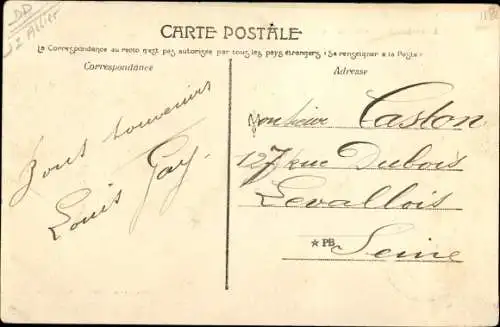 DD
J2 Allier
CARTE POSTALE
La Correspondance au recto n'est pas autorisée par tous les pays étrangers (Se renseigner à la Poste)
Correspondance
Bons souvenirs
Louis Gay.
Adresse
Monsieur Caston
127 rue Dubois
Levallois
* PB
Seine